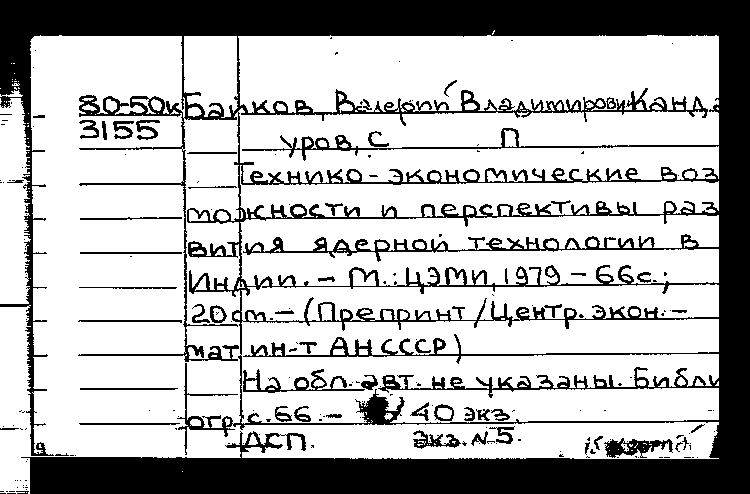 80-50к Байков, Валерий Владимирович Канда
3155 уров, С П
Технико-экономические воз
можности и перспективы раз
вития ядерной технологии в
Индии. - М.: ЦЭМИ, 1979 - 66с.;
20см. - (Препринт / Центр. экон. -
мат ин-т АН СССР)
На обл. авт. не указаны. Библи
огр. с. 66. - 40 экз.
ДСП. Экз. № 5.
9